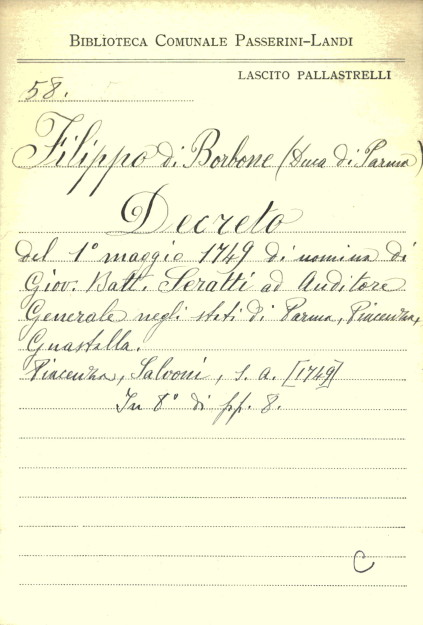 BIBLIOTECA COMUNALE PASSERINI-LANDI
LASCITO PALLASTRELLI
58.
Filippo di Borbone (Duca di Parma)
Decreto
del 1° maggio 1749 di nomina di
Giov. Batt. Seratti ad Auditore
Generale negli stati di Parma, Piacenza,
Guastalla.
Piacenza, Salvoni, s. a. [1749]
In 8° di pp. 8.
C